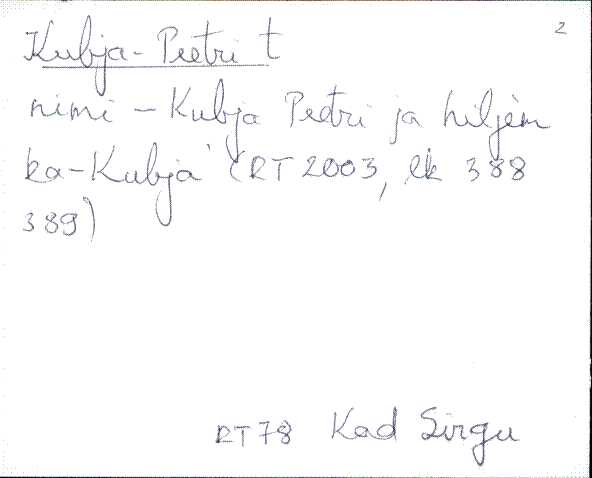 2
Kubja-Peetri t
nimi - Kubja Peetri ja hiljem
ka - Kubja (RT 2003, lk 388
389)
RT78 Kad Sirgu